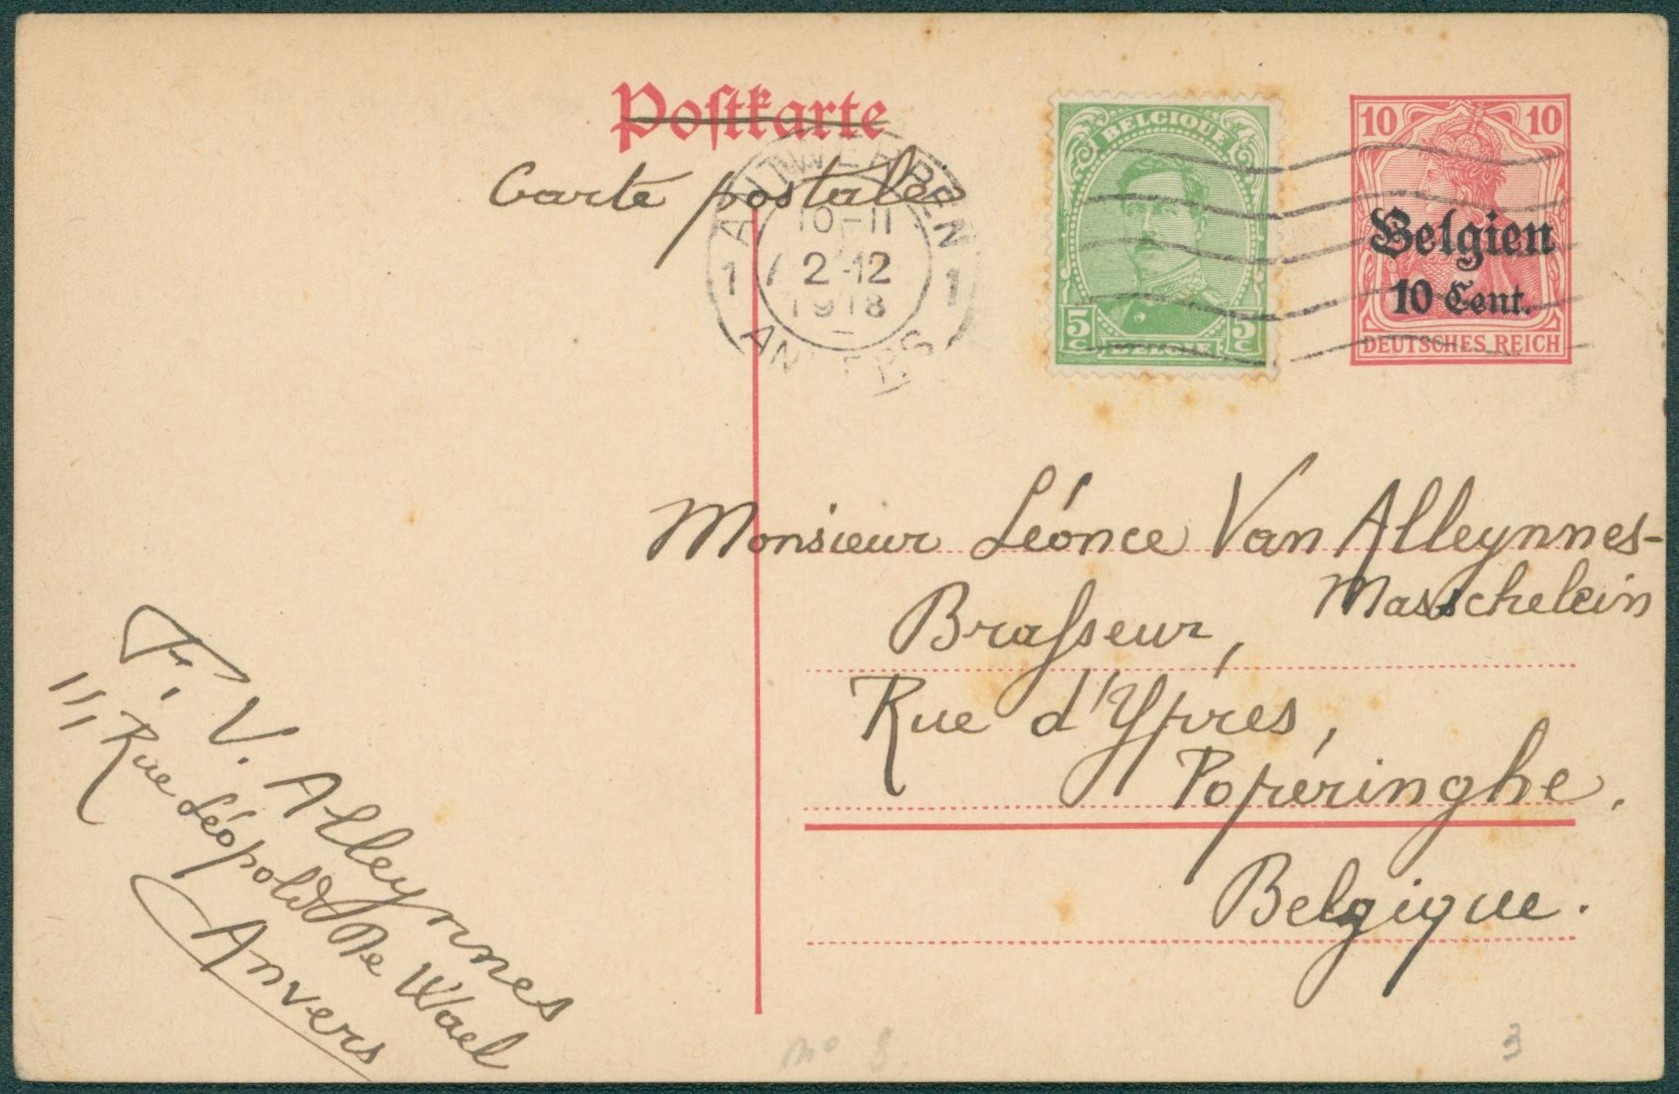 Postkarte
Carte postale
ANTWERPEN
10-11
1 2-12 1
1918
ANVERS
BELGIQUE
5c 5c
BELGIE
10 10
Belgien
10 Cent.
DEUTSCHES REICH
Monsieur Léonce Van Alleynnes-
Masschelein
Brasseur,
Rue d'Ypres,
Popéringhe.
Belgique.
F. V. Alleynnes
11, Rue Léopold De Wael
Anvers
no 8
3